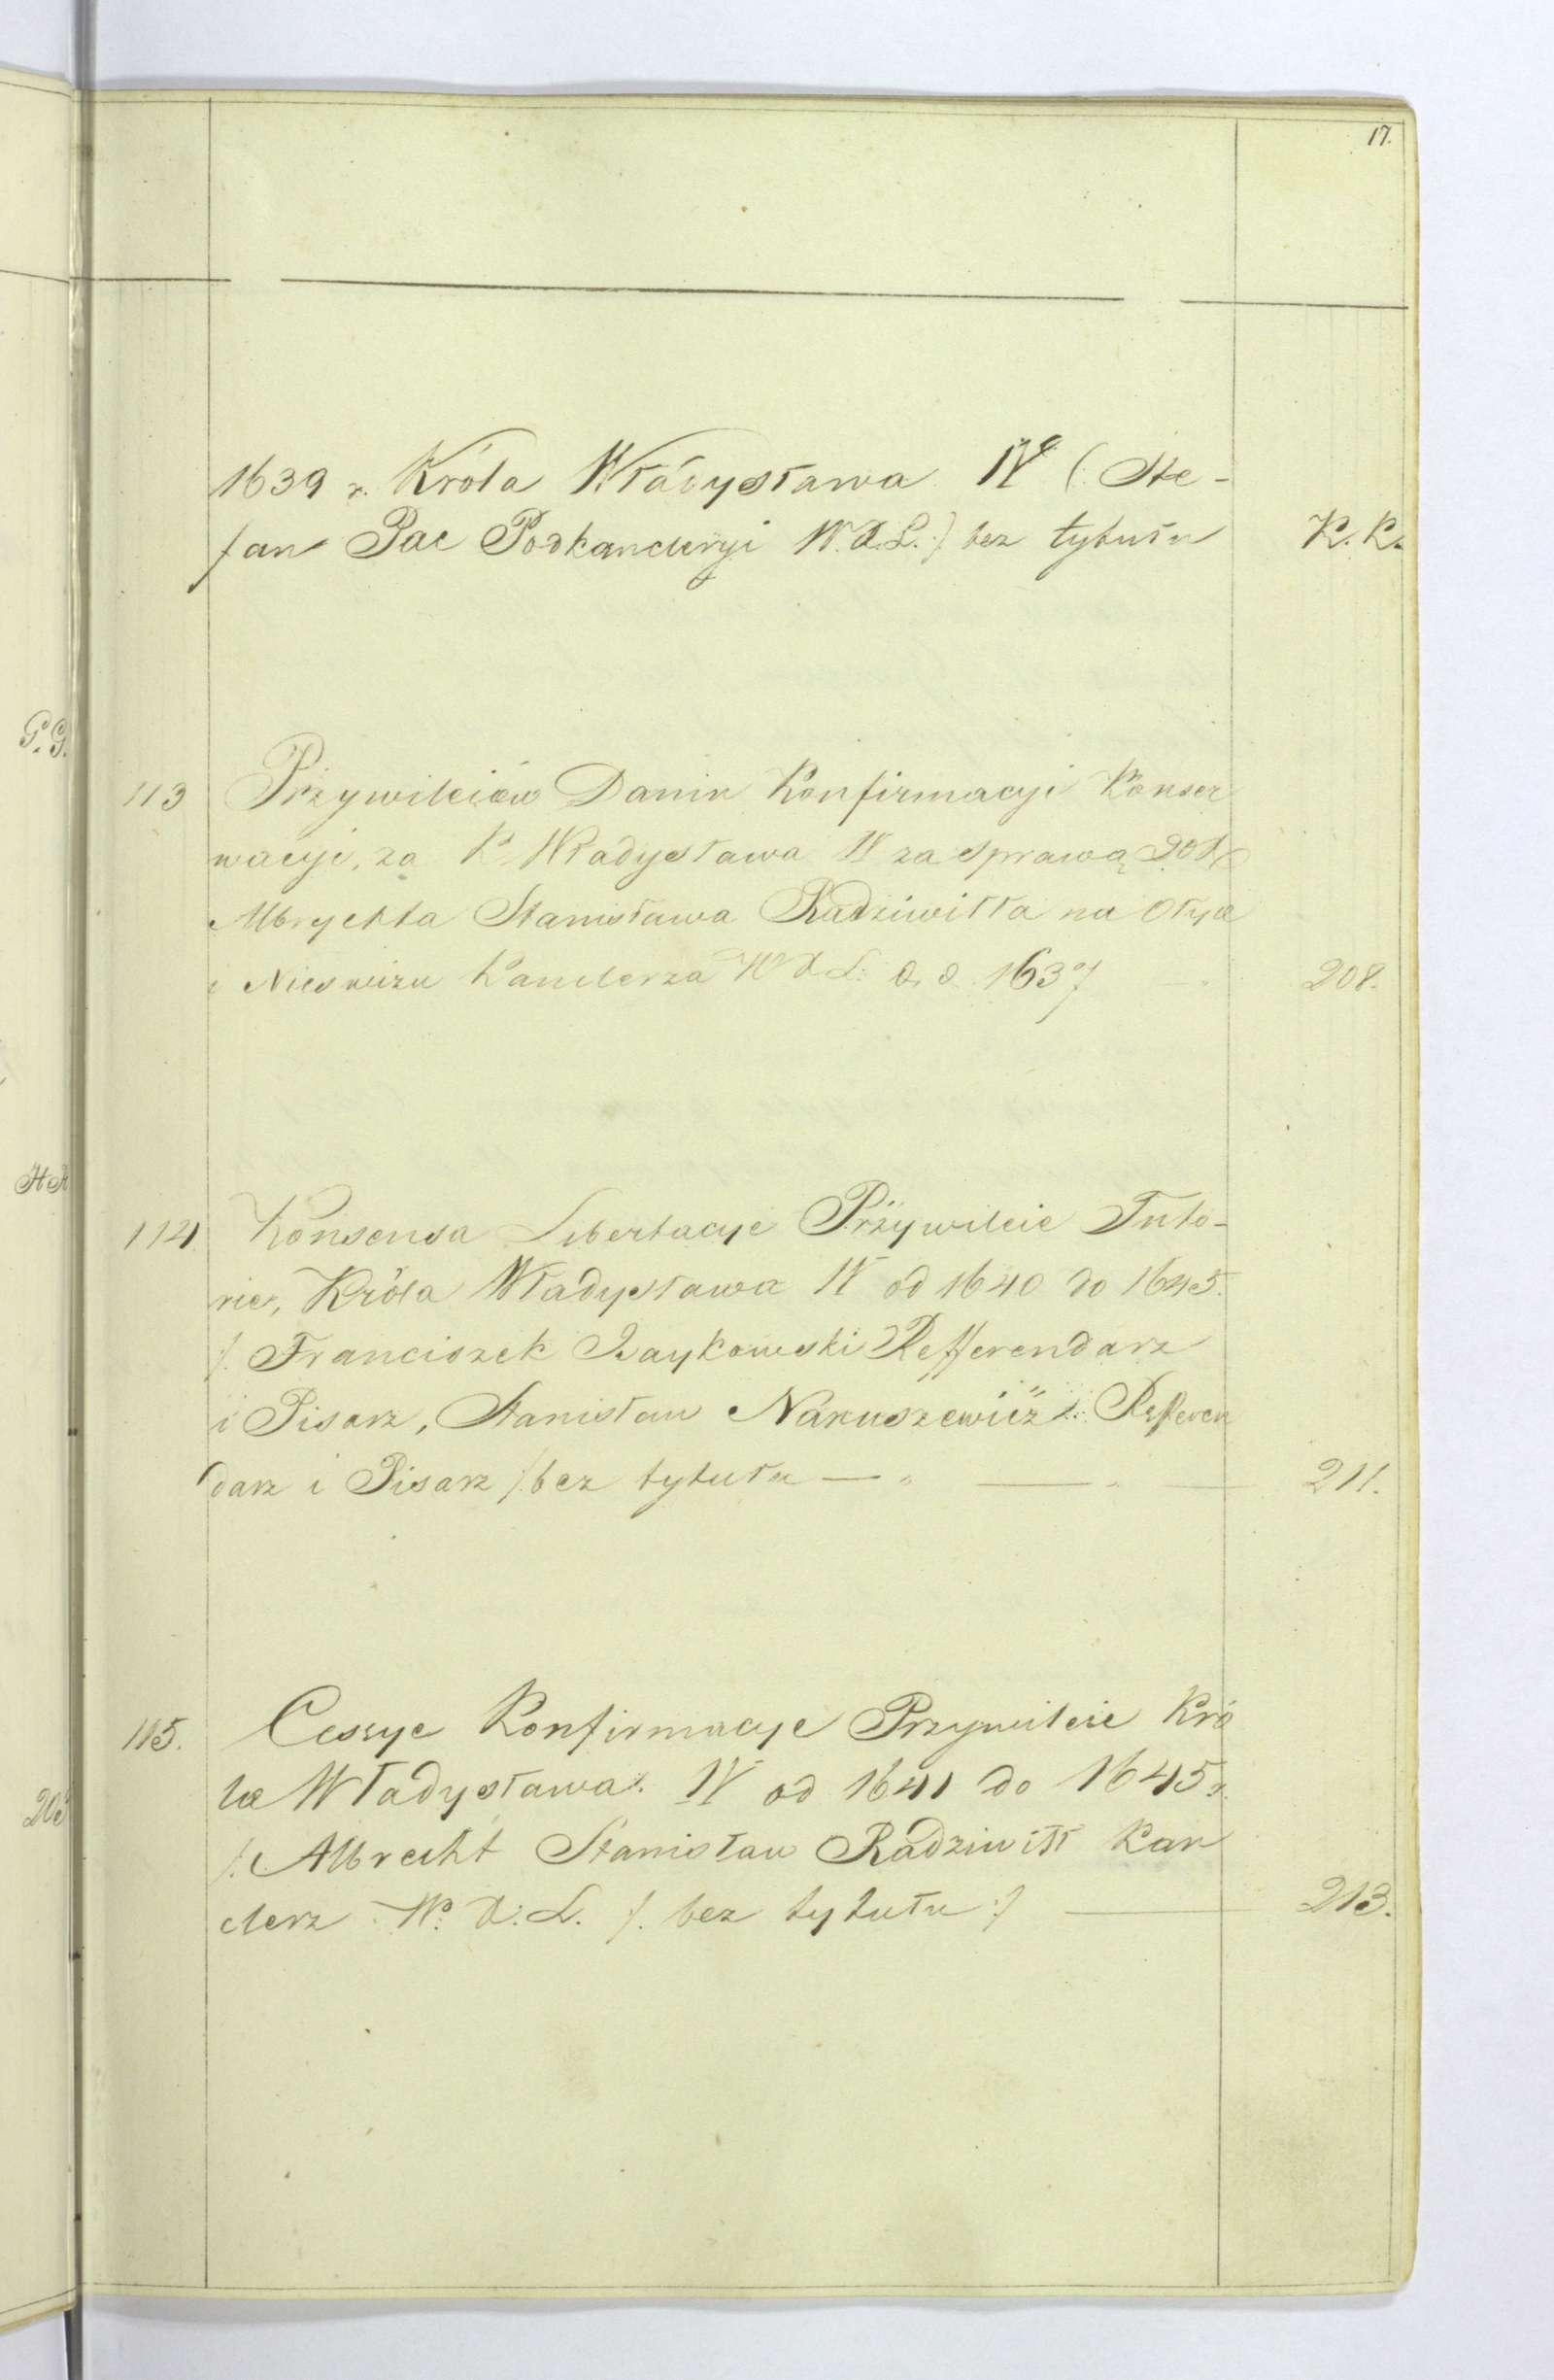 17.
1639 r. Króla Władysława IVo (: Ste-
fan Pac Podkanclerzyi W. X. L. :) bez tytułu K. K.
G. G.
113 Przywileiów Danin Konfirmacyi Konser
wacyi, za K Władysława IV za sprawą
Albrychta Stanisława Radziwiłła na Ołyce
i Nieswizu Kanclerza W X L: d. d. 1637 — 208.
H H
114 Konsensa Libertacye Przywileie Tuto-
rie, Króla Władysława IV od 1640 do 1645.
/. Franciszek Isaykowski Refferendarz
i Pisarz, Stanisław Naruszewicz :/: Referen
darz i Pisarz /. bez tytułu — " — " — 211.
115. Cessye Konfirmacye Przywileie Kró
la Władysława. IV od 1641 do 1645 r.
205
/: Albrecht Stanisław Radziwiłł Kan
clerz W. X. L. /. bez tytułu :/ — 213.